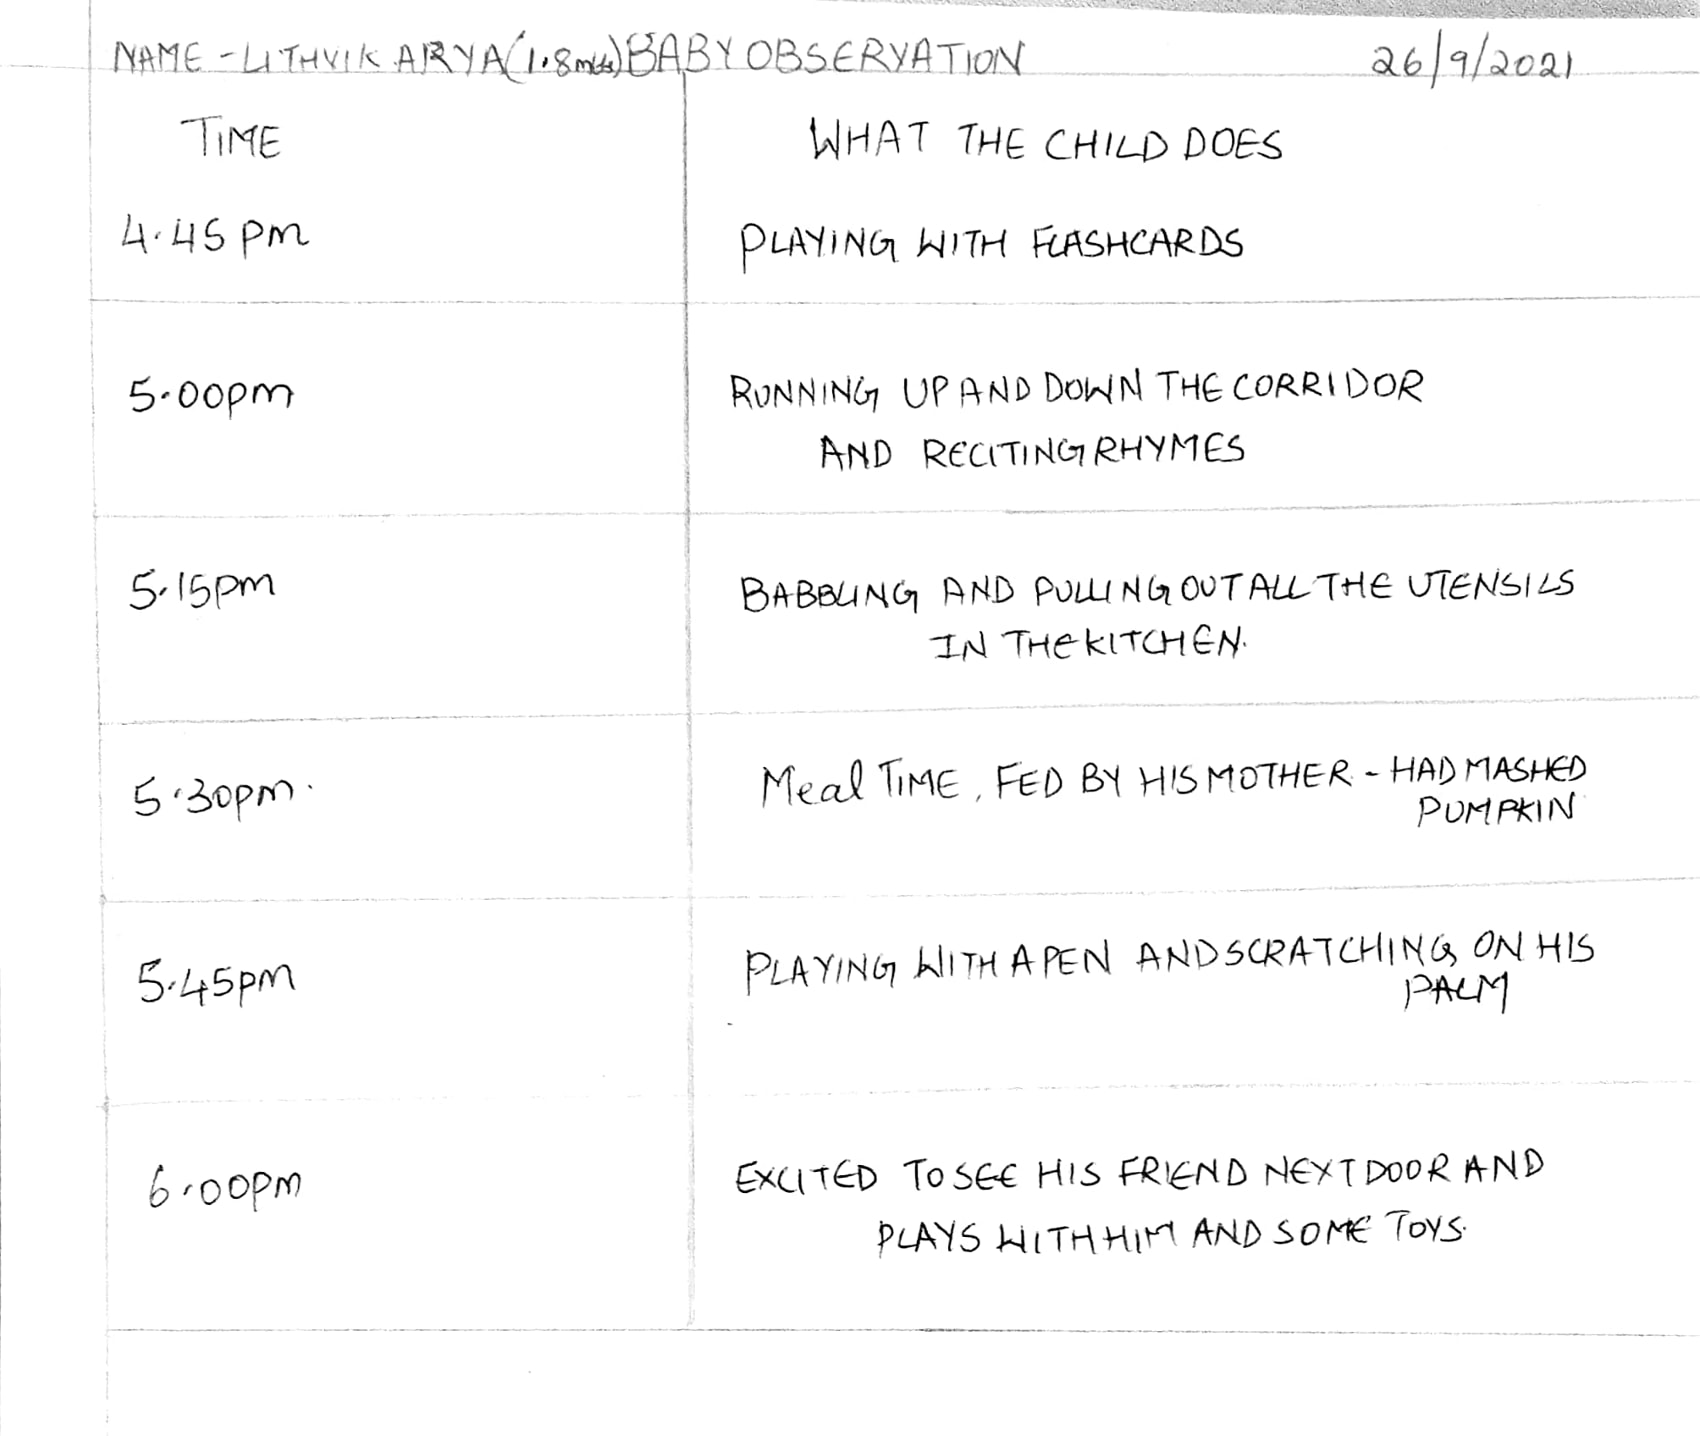 NAME - LITHVIK ARYA (1.8mts) BABY OBSERVATION 26/9/2021
TIME WHAT THE CHILD DOES
4.45 pm PLAYING WITH FLASHCARDS
5.00pm RUNNING UP AND DOWN THE CORRIDOR
AND RECITING RHYMES
5.15pm BABBLING AND PULLING OUT ALL THE UTENSILS
IN THE KITCHEN.
5.30pm. Meal TIME, FED BY HIS MOTHER - HAD MASHED
PUMPKIN
5.45pm PLAYING WITH A PEN AND SCRATCHING ON HIS
PALM
6.00pm EXCITED TO SEE HIS FRIEND NEXT DOOR AND
PLAYS WITH HIM AND SOME TOYS.